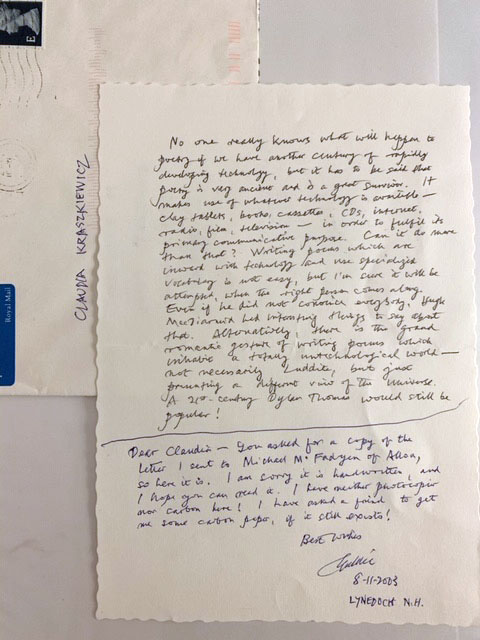 E
Royal Mail
CLAUDIA KRASZKIEWICZ
No one really knows what will happen to
poetry if we have another century of rapidly
developing technology, but it has to be said that
poetry is very ancient and is a great survivor. It
makes use of whatever technology is available —
clay tablets, books, cassettes, CDs, internet,
radio, film, television — in order to fulfil its
primary communicative purpose. Can it do more
than that? Writing poems which are
inward with technology and use specialist
vocabulary is not easy, but I'm sure it will be
attempted, when the right person comes along.
Even if he did not convince everybody, Hugh
MacDiarmid had interesting things to say about
that. Alternatively, there is the grand
romantic gesture of writing poems which
inhabit a totally untechnological world —
not necessarily Luddite, but just
presenting a different view of the universe.
A 21st-century Dylan Thomas would still be
popular!
Dear Claudia — You asked for a copy of the
letter I sent to Michael McFadyen of Alloa,
so here it is. I am sorry it is handwritten, and
I hope you can read it. I have neither photocopier
nor carbon here! I have asked a friend to get
me some carbon paper, if it still exists!
Best wishes
8-11-2003
LYNEDOCH N.H.